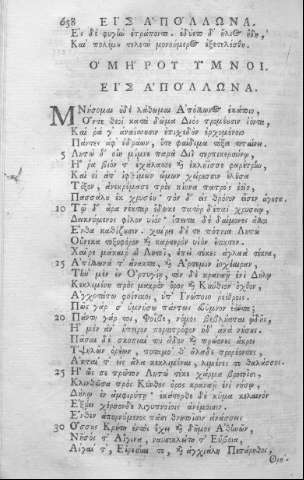 658 ΕΙΣ ΑΠΟΛΛΩΝΑ.
Ἐς δὲ φυγὴν ἐτράποντο. ἐδύετο δ' ἥλιος ἤδη,
Καὶ πολέμου τελετὴ μονοήμερος ἐξετελέσθη.
ΟΜΗΡΟΥ ΥΜΝΟΙ.
ΕΙΣ ΑΠΟΛΛΩΝΑ.
Μνήσομαι οὐδὲ λάθωμαι Ἀπόλλωνος ἑκάτοιο,
Ὅν τε θεοὶ κατὰ δῶμα Διὸς τρομέουσιν ἰόντα,
Καὶ ῥά γ' ἀναΐσσουσιν ἐπιχεδὸν ἐρχομένοιο
Πάντες ἀφ' ἑδράων, ὅτε φαίδιμα τόξα τιταίνει.
5 Λητὼ δ' οἴη μίμνε παραὶ Διῒ τερπικεραύνῳ,
Ἥ ῥα βιόν τ' ἐχάλασσε, καὶ ἐκλήϊσσε φαρέτρην,
Καὶ οἱ ἀπ' ἰφθίμων ὤμων χείρεσσιν ἑλοῦσα
Τόξον, ἀνεκρέμασε πρὸς κίονα πατρὸς ἑοῖο,
Πασσάλου ἐκ χρυσέου· τὸν δ' ἐς θρόνον εἷσεν ἄγουσα.
10 Τῷ δ' ἄρα νέκταρ ἔδωκε πατὴρ δέπαϊ χρυσείῳ,
Δεικνύμενος φίλον υἱόν· ἔπειτα δὲ δαίμονες ἄλλοι
Ἔνθα καθίζουσιν. χαίρει δέ τε πότνια Λητὼ
Οὕνεκα τοξοφόρον καὶ καρτερὸν υἱὸν ἔτικτεν.
Χαῖρε μάκαιρ' ὦ Λητοῖ, ἐπεὶ τέκες ἀγλαὰ τέκνα,
15 Ἀπόλλωνά τ' ἄνακτα, καὶ Ἄρτεμιν ἰοχέαιραν,
Τὴν μὲν ἐν Ὀρτυγίῃ, τὸν δὲ κραναῇ ἐνὶ Δήλῳ
Κεκλιμένη πρὸς μακρὸν ὄρος καὶ Κύνθιον ὄχθον,
Ἀγχοτάτω φοίνικος, ὑπ' Ἰνωποῖο ῥεέθροις.
Πῶς γάρ σ' ὑμνήσω πάντως εὔυμνον ἐόντα;
20 Πάντη γάρ τοι, Φοῖβε, νόμοι βεβλήαται ᾠδῆς,
Ἠ μὲν ἀν' ἤπειρον πορτιτρόφον ἠδ' ἀνὰ νήσους.
Πᾶσαι δὲ σκοπιαί τοι ἅδον καὶ πρώονες ἄκροι
Ὑψηλῶν ὀρέων, ποταμοί θ' ἅλαδε προρέοντες,
Ἀκταί τ' εἰς ἅλα κεκλιμέναι, λιμένες τε θαλάσσης.
25 Ἠ ὥς σε πρῶτον Λητὼ τέκε χάρμα βροτοῖσι,
Κλινθεῖσα πρὸς Κύνθου ὄρος κραναῇ ἐνὶ νήσῳ,
Δήλῳ ἐν ἀμφιρύτῃ· ἑκάτερθε δὲ κῦμα κελαινὸν
Ἐξῄει χέρσονδε λιγυπνοίοις ἀνέμοισιν.
Ἔνθεν ἀπορνύμενος πᾶσι θνητοῖσιν ἀνάσσεις
30 Ὅσσους Κρήτη ἐντὸς ἔχει καὶ δῆμος Ἀθηνῶν,
Νῆσός τ' Αἰγίνη, ναυσικλειτή τ' Εὔβοια,
Αἰγαί τ', Εἰρεσίαι τε, καὶ ἀγχιάλη Πεπάρηθος,